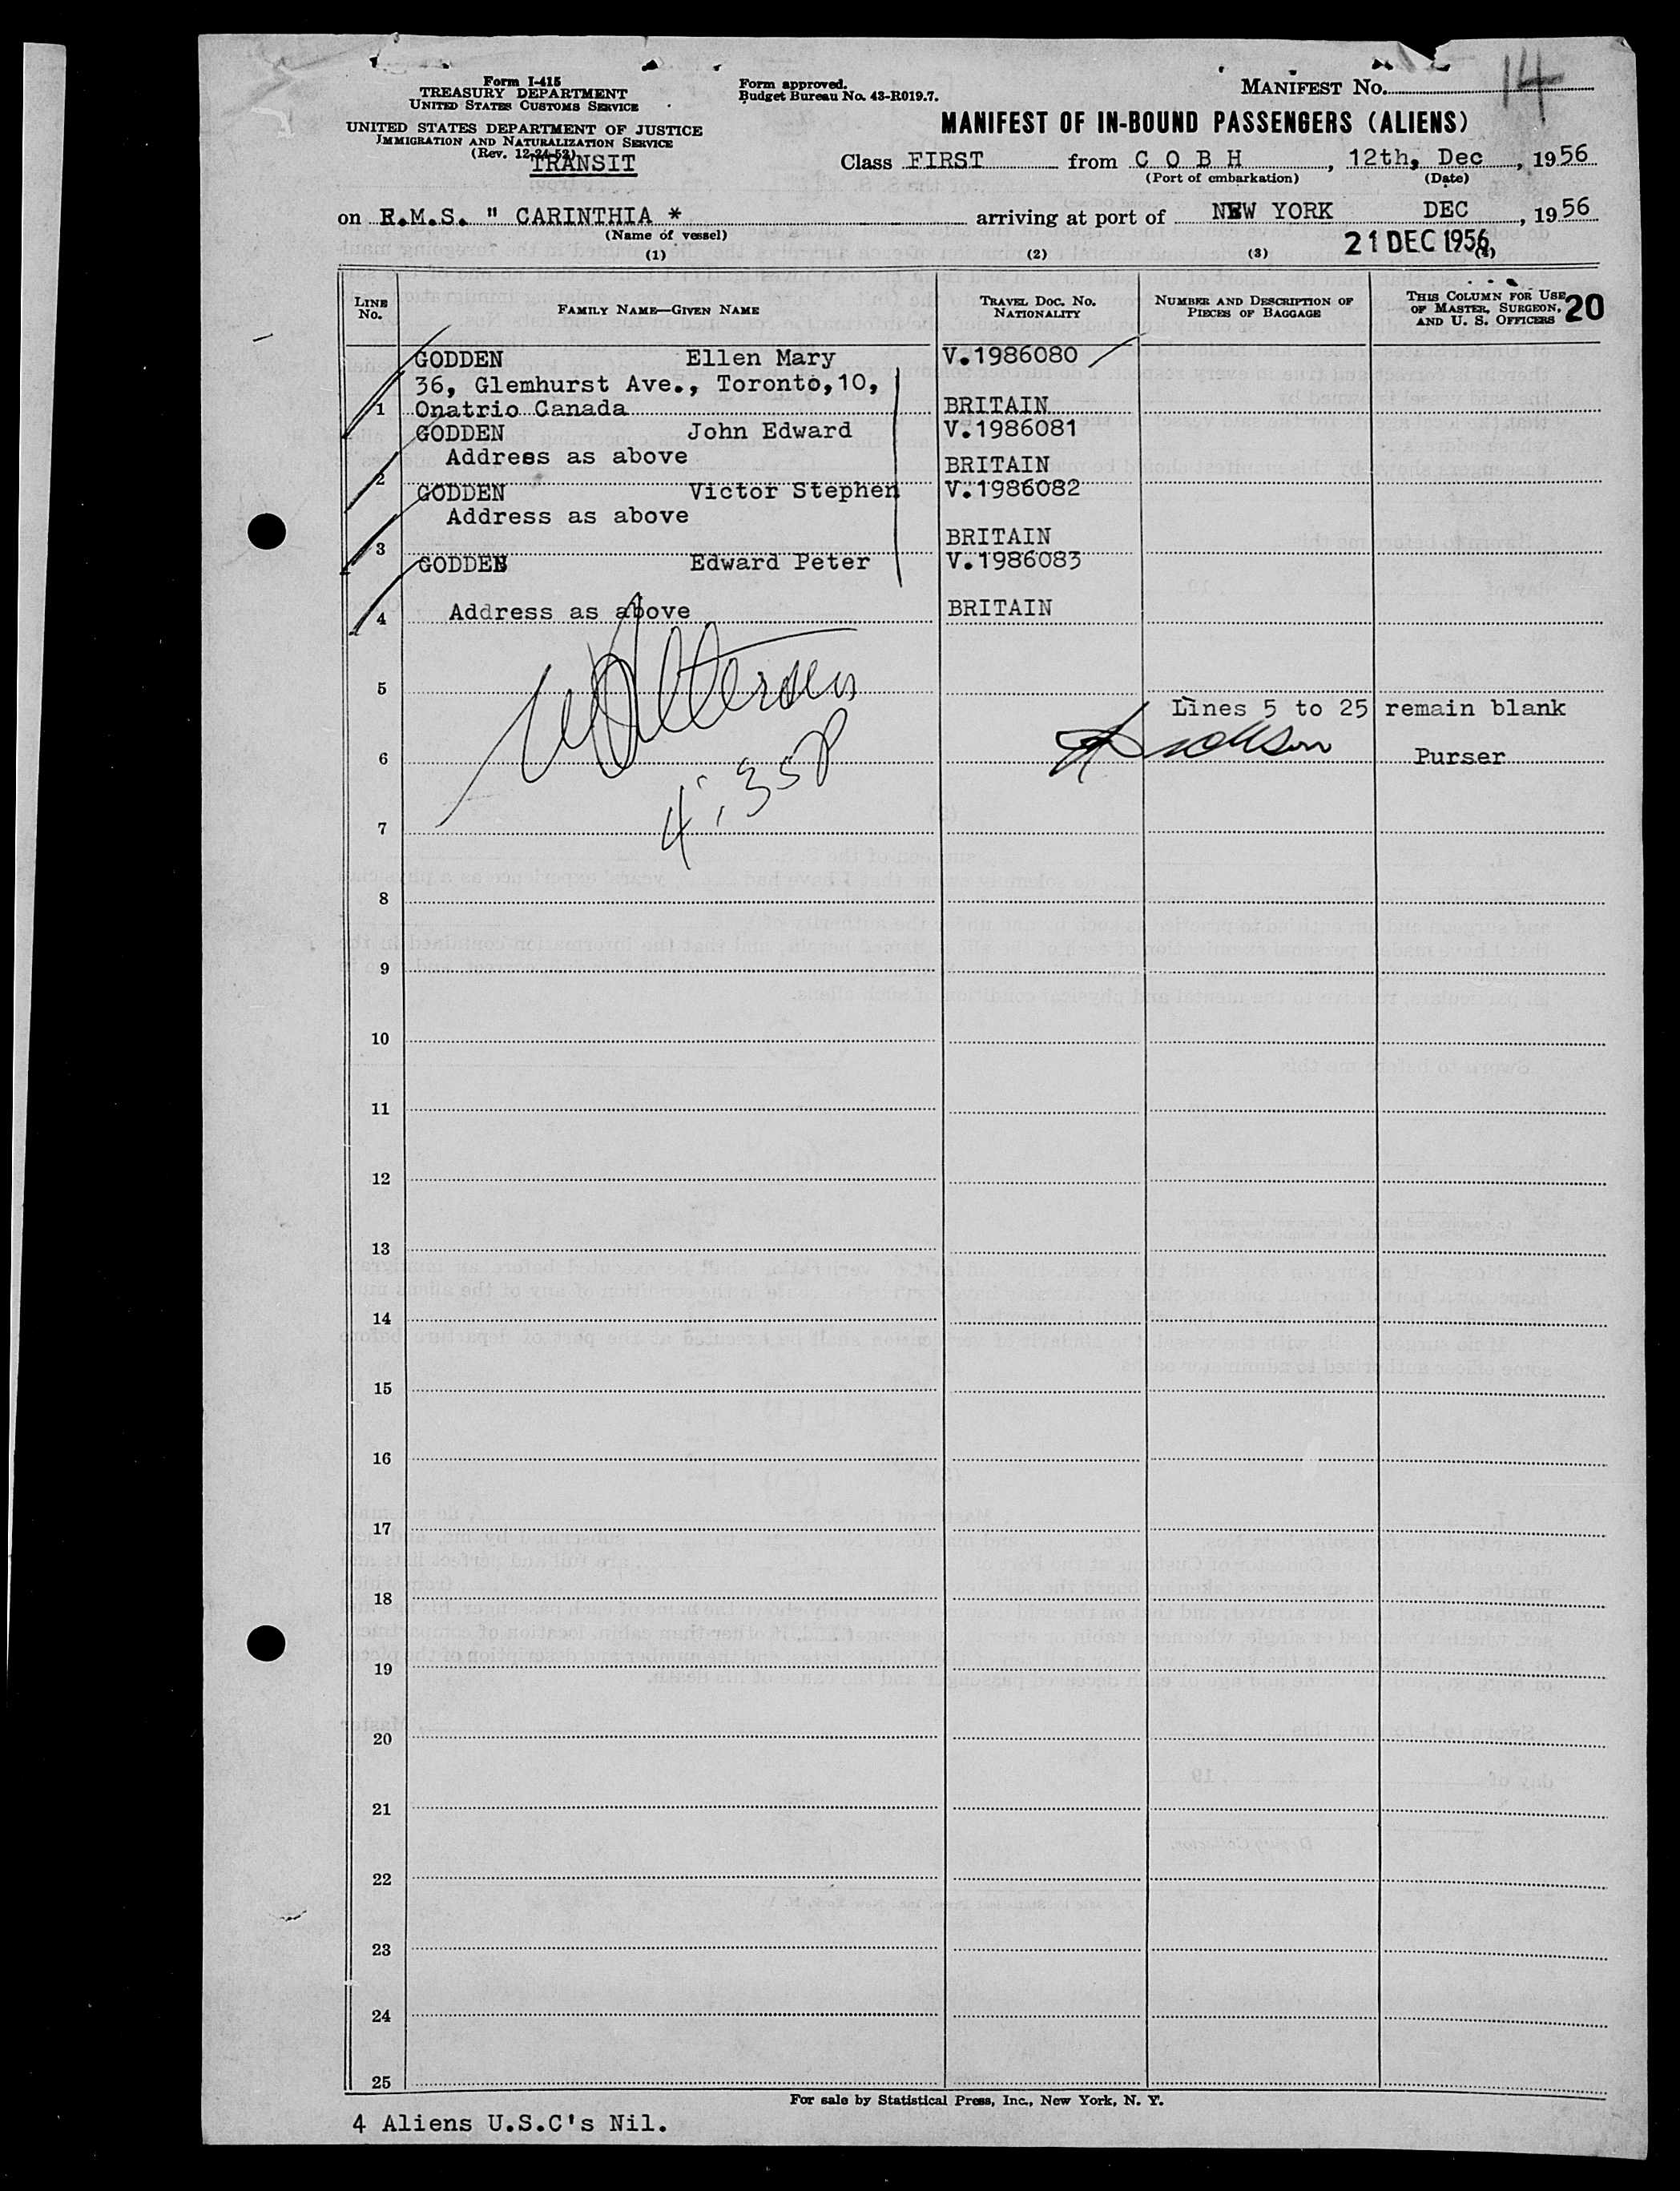 Form I-415
TREASURY DEPARTMENT
UNITED STATES CUSTOMS SERVICE
UNITED STATES DEPARTMENT OF JUSTICE
IMMIGRATION AND NATURALIZATION SERVICE
(Rev. 12-24-52)
TRANSIT
Form approved.
Budget Bureau No. 43-R019.7.
MANIFEST No. 14
MANIFEST OF IN-BOUND PASSENGERS (ALIENS)
Class FIRST from C O B H, 12th, Dec, 1956
(Port of embarkation) (Date)
on R.M.S. " CARINTHIA * arriving at port of NEW YORK DEC, 1956
(Name of vessel)
21 DEC 1956
(1) (2) (3) (4)
LINE No. FAMILY NAME—GIVEN NAME TRAVEL DOC. No. NATIONALITY NUMBER AND DESCRIPTION OF PIECES OF BAGGAGE THIS COLUMN FOR USE OF MASTER, SURGEON, AND U. S. OFFICERS 20
GODDEN Ellen Mary V.1986080
36, Glemhurst Ave., Toronto,10,
1 Onatrio Canada BRITAIN
GODDEN John Edward V.1986081
Address as above BRITAIN
2
GODDEN Victor Stephen V.1986082
Address as above
3 BRITAIN
GODDEN Edward Peter V.1986083
4 Address as above BRITAIN
5
Lines 5 to 25 remain blank
6 Purser
4:35P
7
8
9
10
11
12
13
14
15
16
17
18
19
20
21
22
23
24
25
For sale by Statistical Press, Inc., New York, N. Y.
4 Aliens U.S.C's Nil.